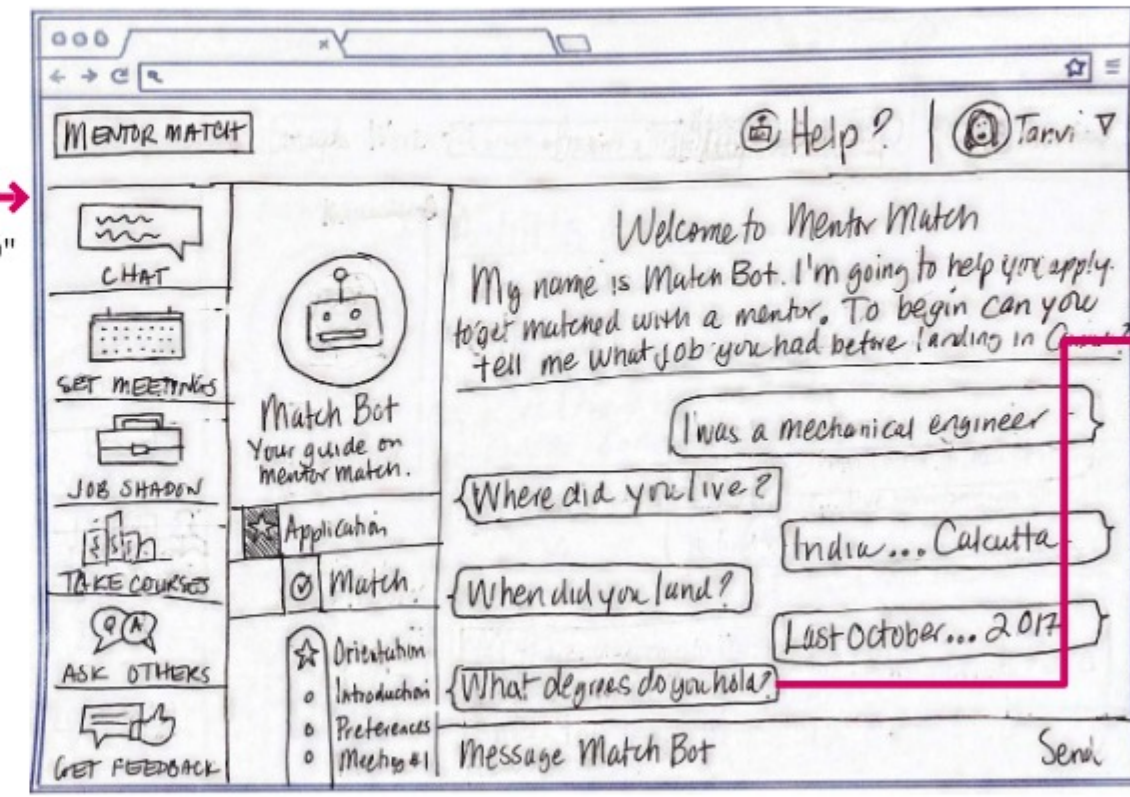 MENTOR MATCH
Help?
Tanvi
CHAT
SET MEETINGS
JOB SHADOW
TAKE COURSES
Q A
ASK OTHERS
GET FEEDBACK
Match Bot
Your guide on
mentor match.
Application
Match
Orientation
Introduction
Preferences
Meeting #1
Welcome to Mentor Match
My name is Match Bot. I'm going to help you apply
to get matched with a mentor. To begin can you
tell me what job you had before landing in
I was a mechanical engineer
Where did you live?
India... Calcutta
When did you land?
Last October... 2017
What degrees do you hold?
Message Match Bot
Send